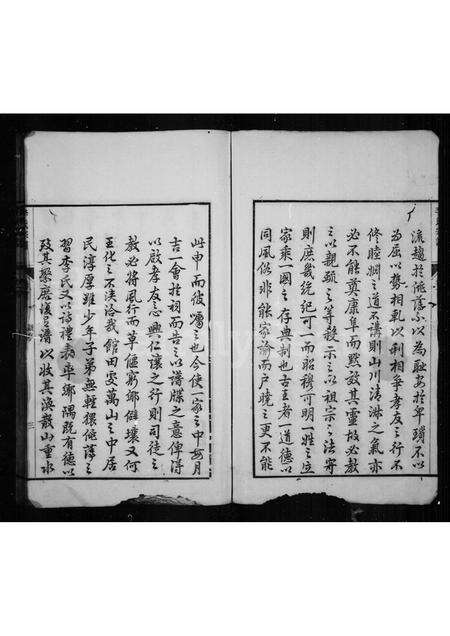 流趨於佻蕩不以為恥安於卑猥不以
為屈以勢相軋以利相爭孝友之行不
修睦婣之道不講則山川清淋之氣亦
必不能奠康阜而默啟其靈故必教
之以親疏之等殺示之以祖宗之法守
則庶幾統紀可一而昭穆可明一姓之立
家乘一國之存典制也古王者一道德以
同風俗非能家諭而戶曉之更不能
此申而彼囑之也今使一家之中每月
吉一會於祠而告之以譜牒之意俾得
以啟孝友之心興仁讓之行則司徒之
教必將風行而草偃窮鄉僻壤又何
王化之不浹洽哉館田受萬山之中居
民淳厚雖少年子弟無輕猥佻蕩之
習李氏又以詩禮表率鄉隅既有德以
致其發應復有譜以收其渙散山重水